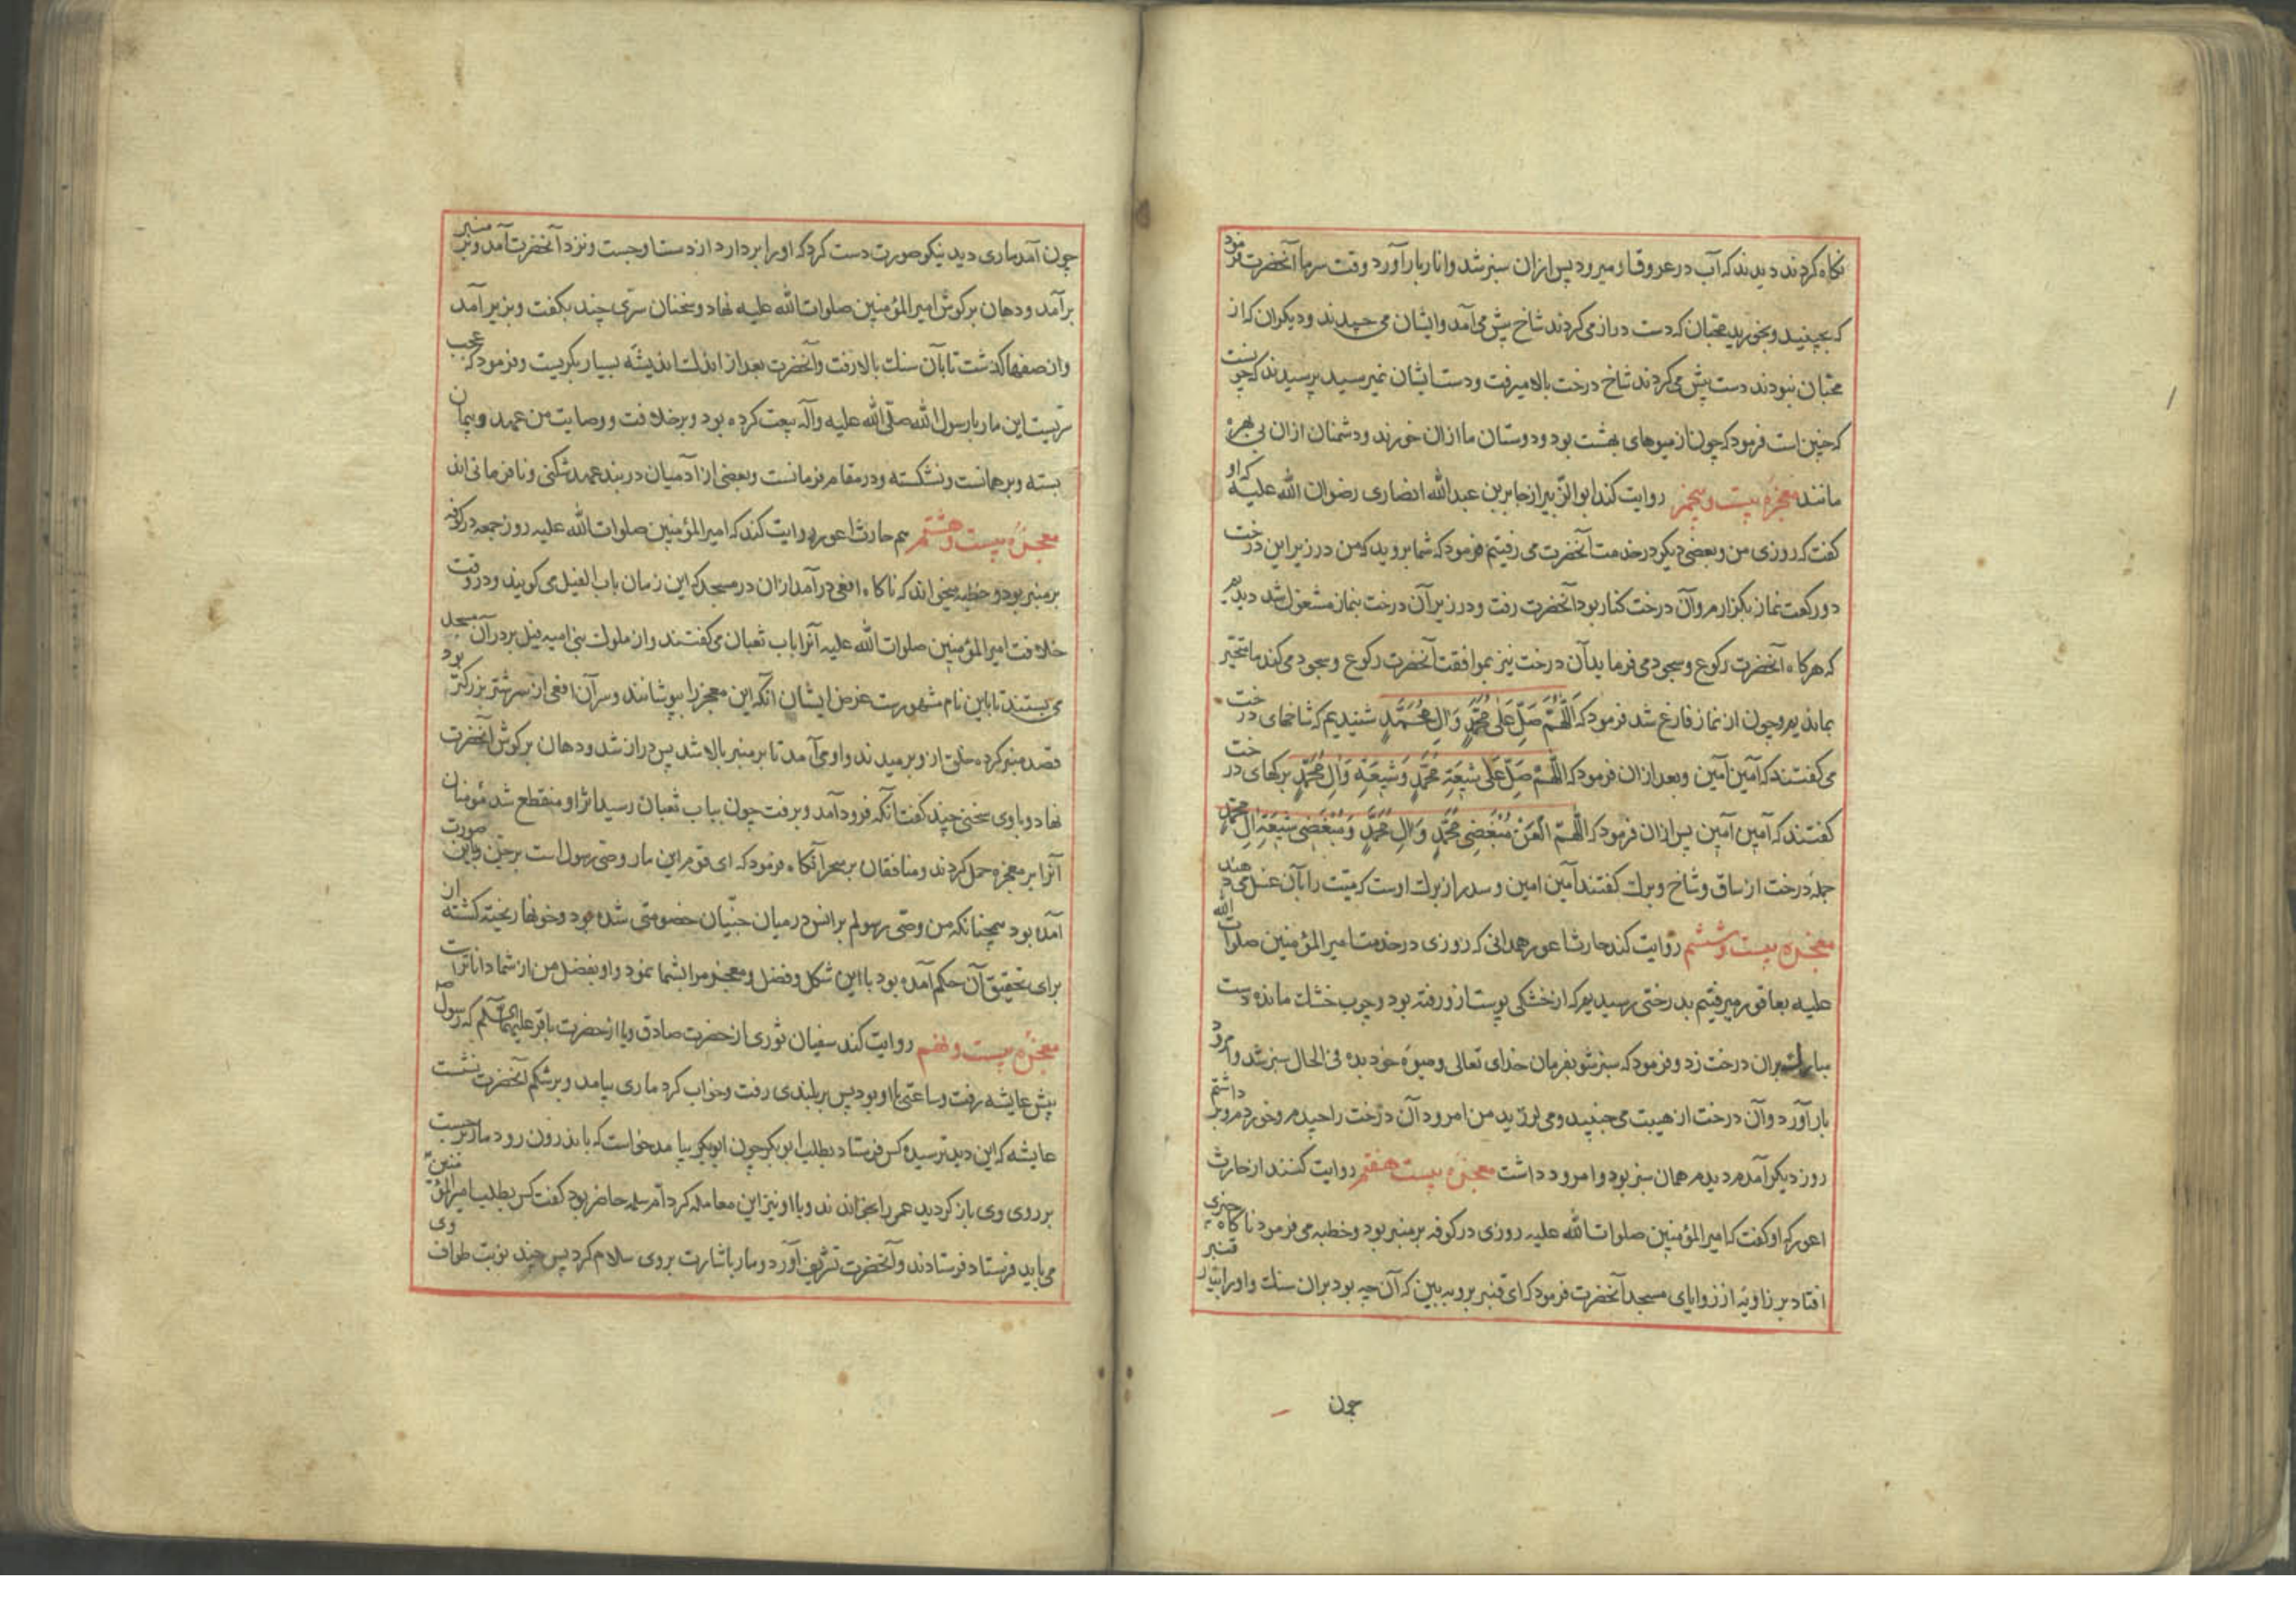 نکاه کردند دیدند که آب در عروق او میرود پس ازان سبز شد و انار بار آورد وقت سرما آنحضرت فرمود
که بچینید و بخورید محبان که دست دراز می کردند شاخ پیش می آمد و ایشان می چیدند و دیکران که از
محبان نبودند دست پیش می کردند شاخ درخت بالا میرفت و دست ایشان نمیرسید پرسیدند که چونست
که چنین است فرمود که چون از میوهای بهشت بود و دوستان ما ازان خورند و دشمنان ازان بی بهره
مانند معجزه بیست و پنجم روایت کند ابوالزبیر از جابر بن عبدالله انصاری رضوان الله علیه که او
کفت که روزی من و بعضی دیکر در خدمت آنحضرت می رفتیم فرمود که شما بروید که من در زیر این درخت
دو رکعت نماز بکزارم و آن درخت کنار بود آنحضرت رفت و در زیر آن درخت بنماز مشغول شد دیدیم
که هرکاه آنحضرت رکوع و سجود می فرماید آن درخت نیز بموافقت آنحضرت رکوع و سجود می کند ما متحیر
بماندیم و چون از نماز فارغ شد فرمود که اَللّٰهُمَّ صَلِّ عَلٰی مُحَمَّدٍ وَاٰلِ مُحَمَّدٍ شنیدیم که شاخهای درخت
می کفتند که آمین آمین و بعد ازان فرمود که اللّٰهُمَّ صَلِّ عَلٰی شِیعَةِ مُحَمَّدٍ وَشِیعَةِ وَاٰلِ مُحَمَّدٍ برکهای درخت
کفتند که آمین آمین پس ازان فرمود که اللّٰهُمَّ الْعَنْ مُبْغِضِی مُحَمَّدٍ وَاٰلِ مُحَمَّدٍ وَمُبْغِضِی شِیعَةِ اٰلِ مُحَمَّدٍ
جمله درخت از ساق و شاخ و برک کفتند آمین امین و سدر از برک اوست که میت را بآن غسل می دهند
معجزه بیست و ششم روایت کند حارث اعور همدانی که روزی در خدمت امیر المؤمنین صلوات الله
علیه بعاقول میرفتیم بدرختی رسیدیم که از خشکی پوست ازو رفته بود و چوب خشک مانده دست
مبارک بران درخت زد و فرمود که سبز شو بفرمان خدای تعالی و میوه خود بده فی الحال سبز شد و امرود
بار آورد و آن درخت از هیبت می جنبید و می لرزید من امرود آن درخت را چیدم و خوردم و برداشتم
روز دیکر آمدم دیدم همان سبز بود و امرود داشت معجزه بیست هفتم روایت کنند از حارث
اعور که او کفت که امیر المؤمنین صلوات الله علیه روزی در کوفه بر منبر بود و خطبه می فرمود ناکاه چیزی
افتاد بر زاویه از زوایای مسجد آنحضرت فرمود که ای قنبر برو ببین که آن چیه بود بران سنک و او را بیار قنبر
چون
چون آمد ماری دید نیکو صورت دست کرد که او را بردارد از دست او جست و نزد آنحضرت آمد و بر منبر
برآمد و دهان بر کوش امیر المؤمنین صلوات الله علیه نهاد و سخنان سرّی چند بکفت و بزیر آمد
و از صفها کذشت تا بآن سنک بالا رفت و آنحضرت بعد از اندک اندیشه بسیار بکریست و فرمود که عجب
نیست این مار با رسول الله صلی الله علیه وآله بیعت کرده بود و بر خلافت و وصایت من عهد و پیمان
بسته و برهمانست و نشکسته و در مقام فرمانست و بعضی از آدمیان در بند عهد شکنی و نافرمانی اند
معجزه بیست و هشتم هم حارث اعور روایت کند که امیر المؤمنین صلوات الله علیه روز جمعه در کوفه
بر منبر بود و خطبه میخواند که ناکاه افعی درآمد ازان در مسجد که این زمان باب الفیل می کویند و در وقت
خلافت امیر المؤمنین صلوات الله علیه آنرا باب ثعبان می کفتند و از ملوک بنی امیه فیل بر در آن مسجد
می بستند تا باین نام مشهورست غرض ایشان آنکه این معجز را بپوشانند و سر آن افعی از سر شتر بزرکتر بود
قصد منبر کرده خلق ازو برمیدند و او می آمد تا بر منبر بالا شد پس دراز شد و دهان بر کوش آنحضرت
نهاد و با وی سخنی چند کفت آنکه فرود آمد و برفت چون بباب ثعبان رسید اثر او منقطع شد مؤمنان
آنرا بر معجزه حمل کردند و منافقان بر سحر آنکاه فرمود که ای قوم این مار وصی رسول است بر جن و باین صورت
آمده بود همچنانکه من وصی رسولم بر انس در میان جنّیان خصومتی شده بود و خونها ریخته کشته از
برای تحقیق آن حکم آمده بود با این شکل و فضل و معجز مرا بشما نمود و او بفضل من از شما داناترست
معجزه بیست و نهم روایت کند سفیان ثوری از حضرت صادق و یا از حضرت باقر علیهما السلم که رسول ص
پیش عایشه رفت و ساعتی با او بود پس بر بلندی رفت و خواب کرد ماری بیامد و بر شکم آنحضرت نشست
عایشه که این دید ترسیده کس فرستاد بطلب ابوبکر چون ابوبکر بیامد خواست که باندرون رود مار برجست
بر روی وی باز کردید عمر را بخواندند و با او نیز این معامله کرد ام سلمه حاضر بود کفت کس بطلب امیر المؤمنین
می باید فرستاد فرستادند و آنحضرت تشریف آورد و مار باشارت بروی سلام کرد پس چند نوبت طواف وی